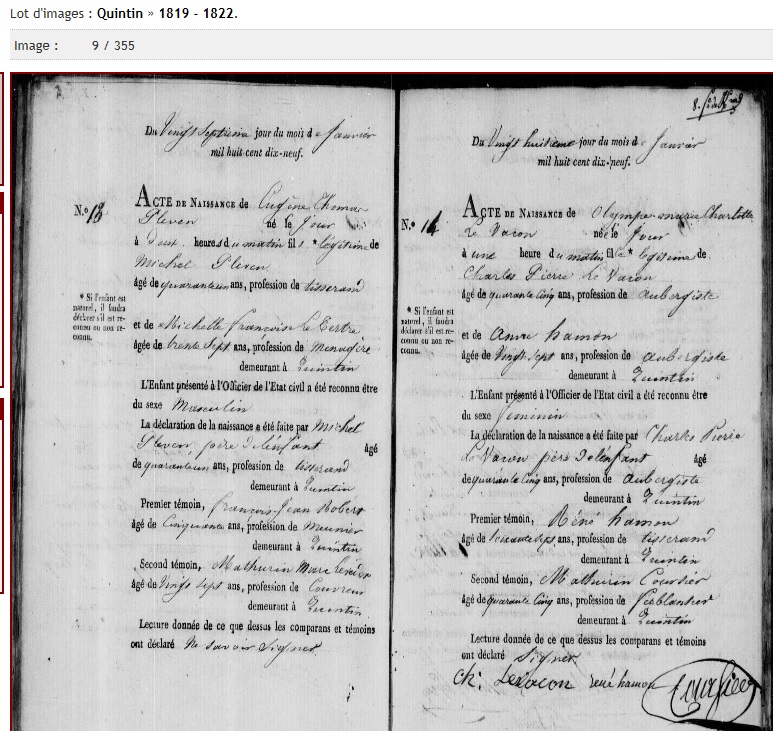 Lot d'images : Quintin » 1819 - 1822.
Image : 9 / 355
Du Vingt Septieme jour du mois de Janvier
mil huit cent dix-neuf.
N.º 13
ACTE DE NAISSANCE de Eugène Thomas
Pleven né le Jour
à deux heures du matin fils * légitime de
Michel Pleven
âgé de quarante un ans, profession de tisserand
* Si l'enfant est
naturel, il faudra
déclarer s'il est re-
connu ou non re-
connu.
et de Michelle françoise Le Tertre
âgée de trente Sept ans, profession de menagère
demeurant à Quintin
L'Enfant présenté à l'Officier de l'Etat civil a été reconnu être
du sexe Masculin
La déclaration de la naissance a été faite par Michel
Pleven père de l'enfant âgé
de quarante un ans, profession de tisserand
demeurant à Quintin
Premier témoin, françois Jean Robert
âgé de Cinquante ans, profession de Meunier
demeurant à Quintin
Second témoin, Mathurin
âgé de Vingt Sept ans, profession de Couvreur
demeurant à Quintin
Lecture donnée de ce que dessus les comparans et témoins
ont déclaré Ne savoir Signer.
8.
Du Vingt huitieme jour du mois de Janvier
mil huit cent dix-neuf.
N.º 14
ACTE DE NAISSANCE de Olympe marie Charlotte
Le Vacon née le Jour
à une heure du matin fille * légitime de
Charles Pierre Le Vacon
âgé de quarante Cinq ans, profession de aubergiste
* Si l'enfant est
naturel, il faudra
déclarer s'il est re-
connu ou non re-
connu.
et de Anne hamon
âgée de Vingt Sept ans, profession de aubergiste
demeurant à Quintin
L'Enfant présenté à l'Officier de l'Etat civil a été reconnu être
du sexe féminin
La déclaration de la naissance a été faite par Charles Pierre
Le Vacon père de l'enfant âgé
de quarante Cinq ans, profession de aubergiste
demeurant à Quintin
Premier témoin, Réné hamon
âgé de Soixante Sept ans, profession de tisserand
demeurant à Quintin
Second témoin, Mathurin Courtier
âgé de quarante Cinq ans, profession de ferblantier
demeurant à Quintin
Lecture donnée de ce que dessus les comparans et témoins
ont déclaré Signer
ch: Levacon rené hamon